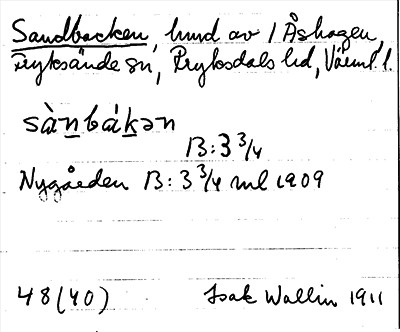 Sandbacken, hmd av 1 Åshagen,
Fryksände sn, Fryksdals hd, Värml. l.
sàn̲bák̲ən
B: 3 3/4
Nygården B: 3 3/4 ml 1909
48 (40) Isak Wallin 1911